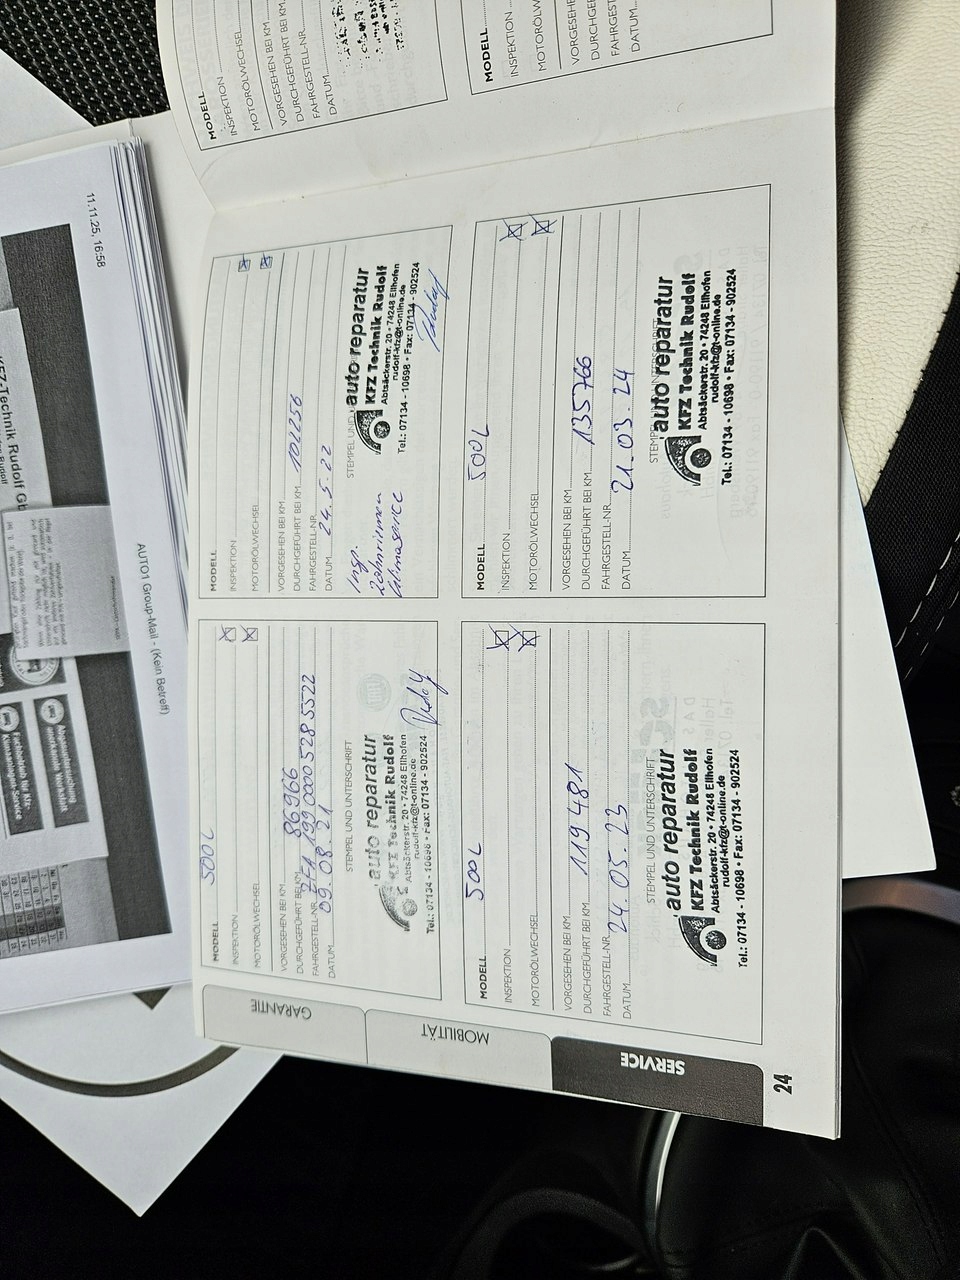 MODELL
INSPEKTION
MOTORÖLWECHSEL
VORGESEHEN BEI KM
DURCHGEFÜHRT BEI KM
FAHRGESTELL-NR.
DATUM
MODELL
INSPEKTION
MOTORÖLWECHSEL
VORGESEHEN BEI KM
DURCHGEFÜHRT BEI KM
FAHRGESTELL-NR.
DATUM
11.11.25, 16:58
AUTO1 Group-Mail - (Kein Betreff)
KFZ-Technik Rudolf
MODELL 500L
INSPEKTION
MOTORÖLWECHSEL
VORGESEHEN BEI KM
DURCHGEFÜHRT BEI KM 86966
FAHRGESTELL-NR. ZFA 199 0000 5285522
DATUM 09.08.21
STEMPEL UND UNTERSCHRIFT
auto reparatur
KFZ Technik Rudolf
Abtsäckerstr. 20 • 74248 Ellhofen
rudolf-kfz@t-online.de
Tel.: 07134 - 10698 • Fax: 07134 - 902524
Rudolf
MODELL
INSPEKTION
MOTORÖLWECHSEL
VORGESEHEN BEI KM
DURCHGEFÜHRT BEI KM 101256
FAHRGESTELL-NR.
DATUM 24.5.22
STEMPEL UND
Insp.
Zahnriemen
Klimaservice
auto reparatur
KFZ Technik Rudolf
Abtsäckerstr. 20 • 74248 Ellhofen
rudolf-kfz@t-online.de
Tel.: 07134 - 10698 • Fax: 07134 - 902524
Rudolf
MODELL 500L
INSPEKTION
MOTORÖLWECHSEL
VORGESEHEN BEI KM
DURCHGEFÜHRT BEI KM 119481
FAHRGESTELL-NR.
DATUM 24.05.23
STEMPEL UND UNTERSCHRIFT
auto reparatur
KFZ Technik Rudolf
Abtsäckerstr. 20 • 74248 Ellhofen
rudolf-kfz@t-online.de
Tel.: 07134 - 10698 • Fax: 07134 - 902524
MODELL 500L
INSPEKTION
MOTORÖLWECHSEL
VORGESEHEN BEI KM
DURCHGEFÜHRT BEI KM 135766
FAHRGESTELL-NR.
DATUM 21.03.24
STEMPEL UND UNTERSCHRIFT
auto reparatur
KFZ Technik Rudolf
Abtsäckerstr. 20 • 74248 Ellhofen
rudolf-kfz@t-online.de
Tel.: 07134 - 10698 • Fax: 07134 - 902524
GARANTIE
MOBILITÄT
SERVICE
24